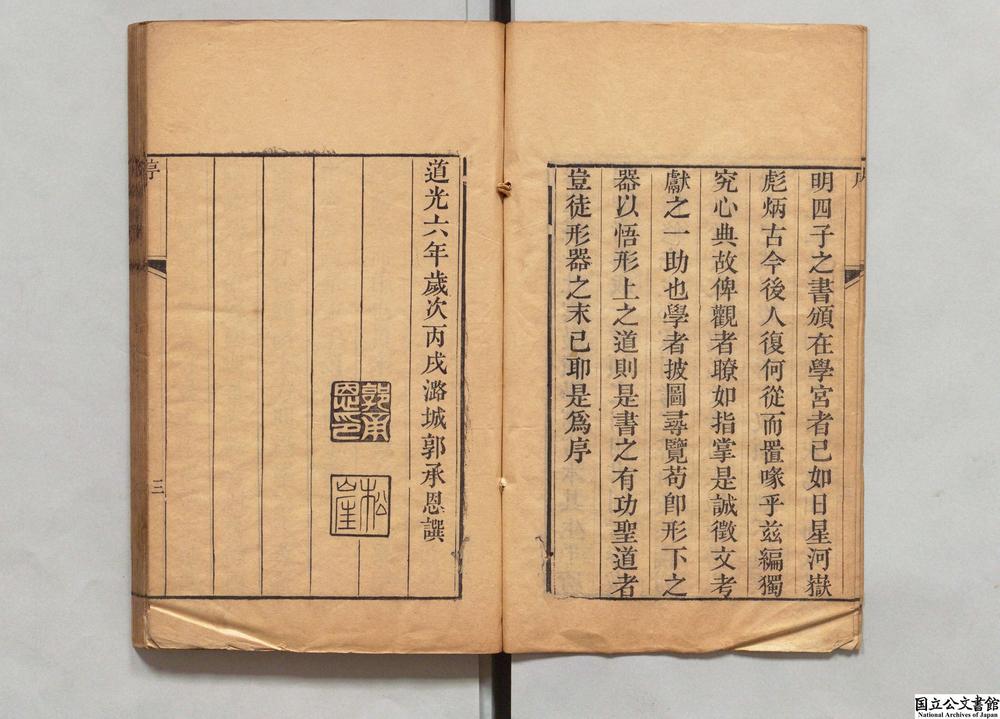 明四子之書頒在學宮者已如日星河嶽
彪炳古今後人復何從而置喙乎茲編獨
究心典故俾觀者瞭如指掌是誠徵文考
獻之一助也學者披圖尋覽苟卽形下之
器以悟形上之道則是書之有功聖道者
豈徒形器之末已耶是爲序
道光六年歲次丙戌潞城郭承恩譔
郭承
恩印
松
崖
序
三
国立公文書館
National Archives of Japan